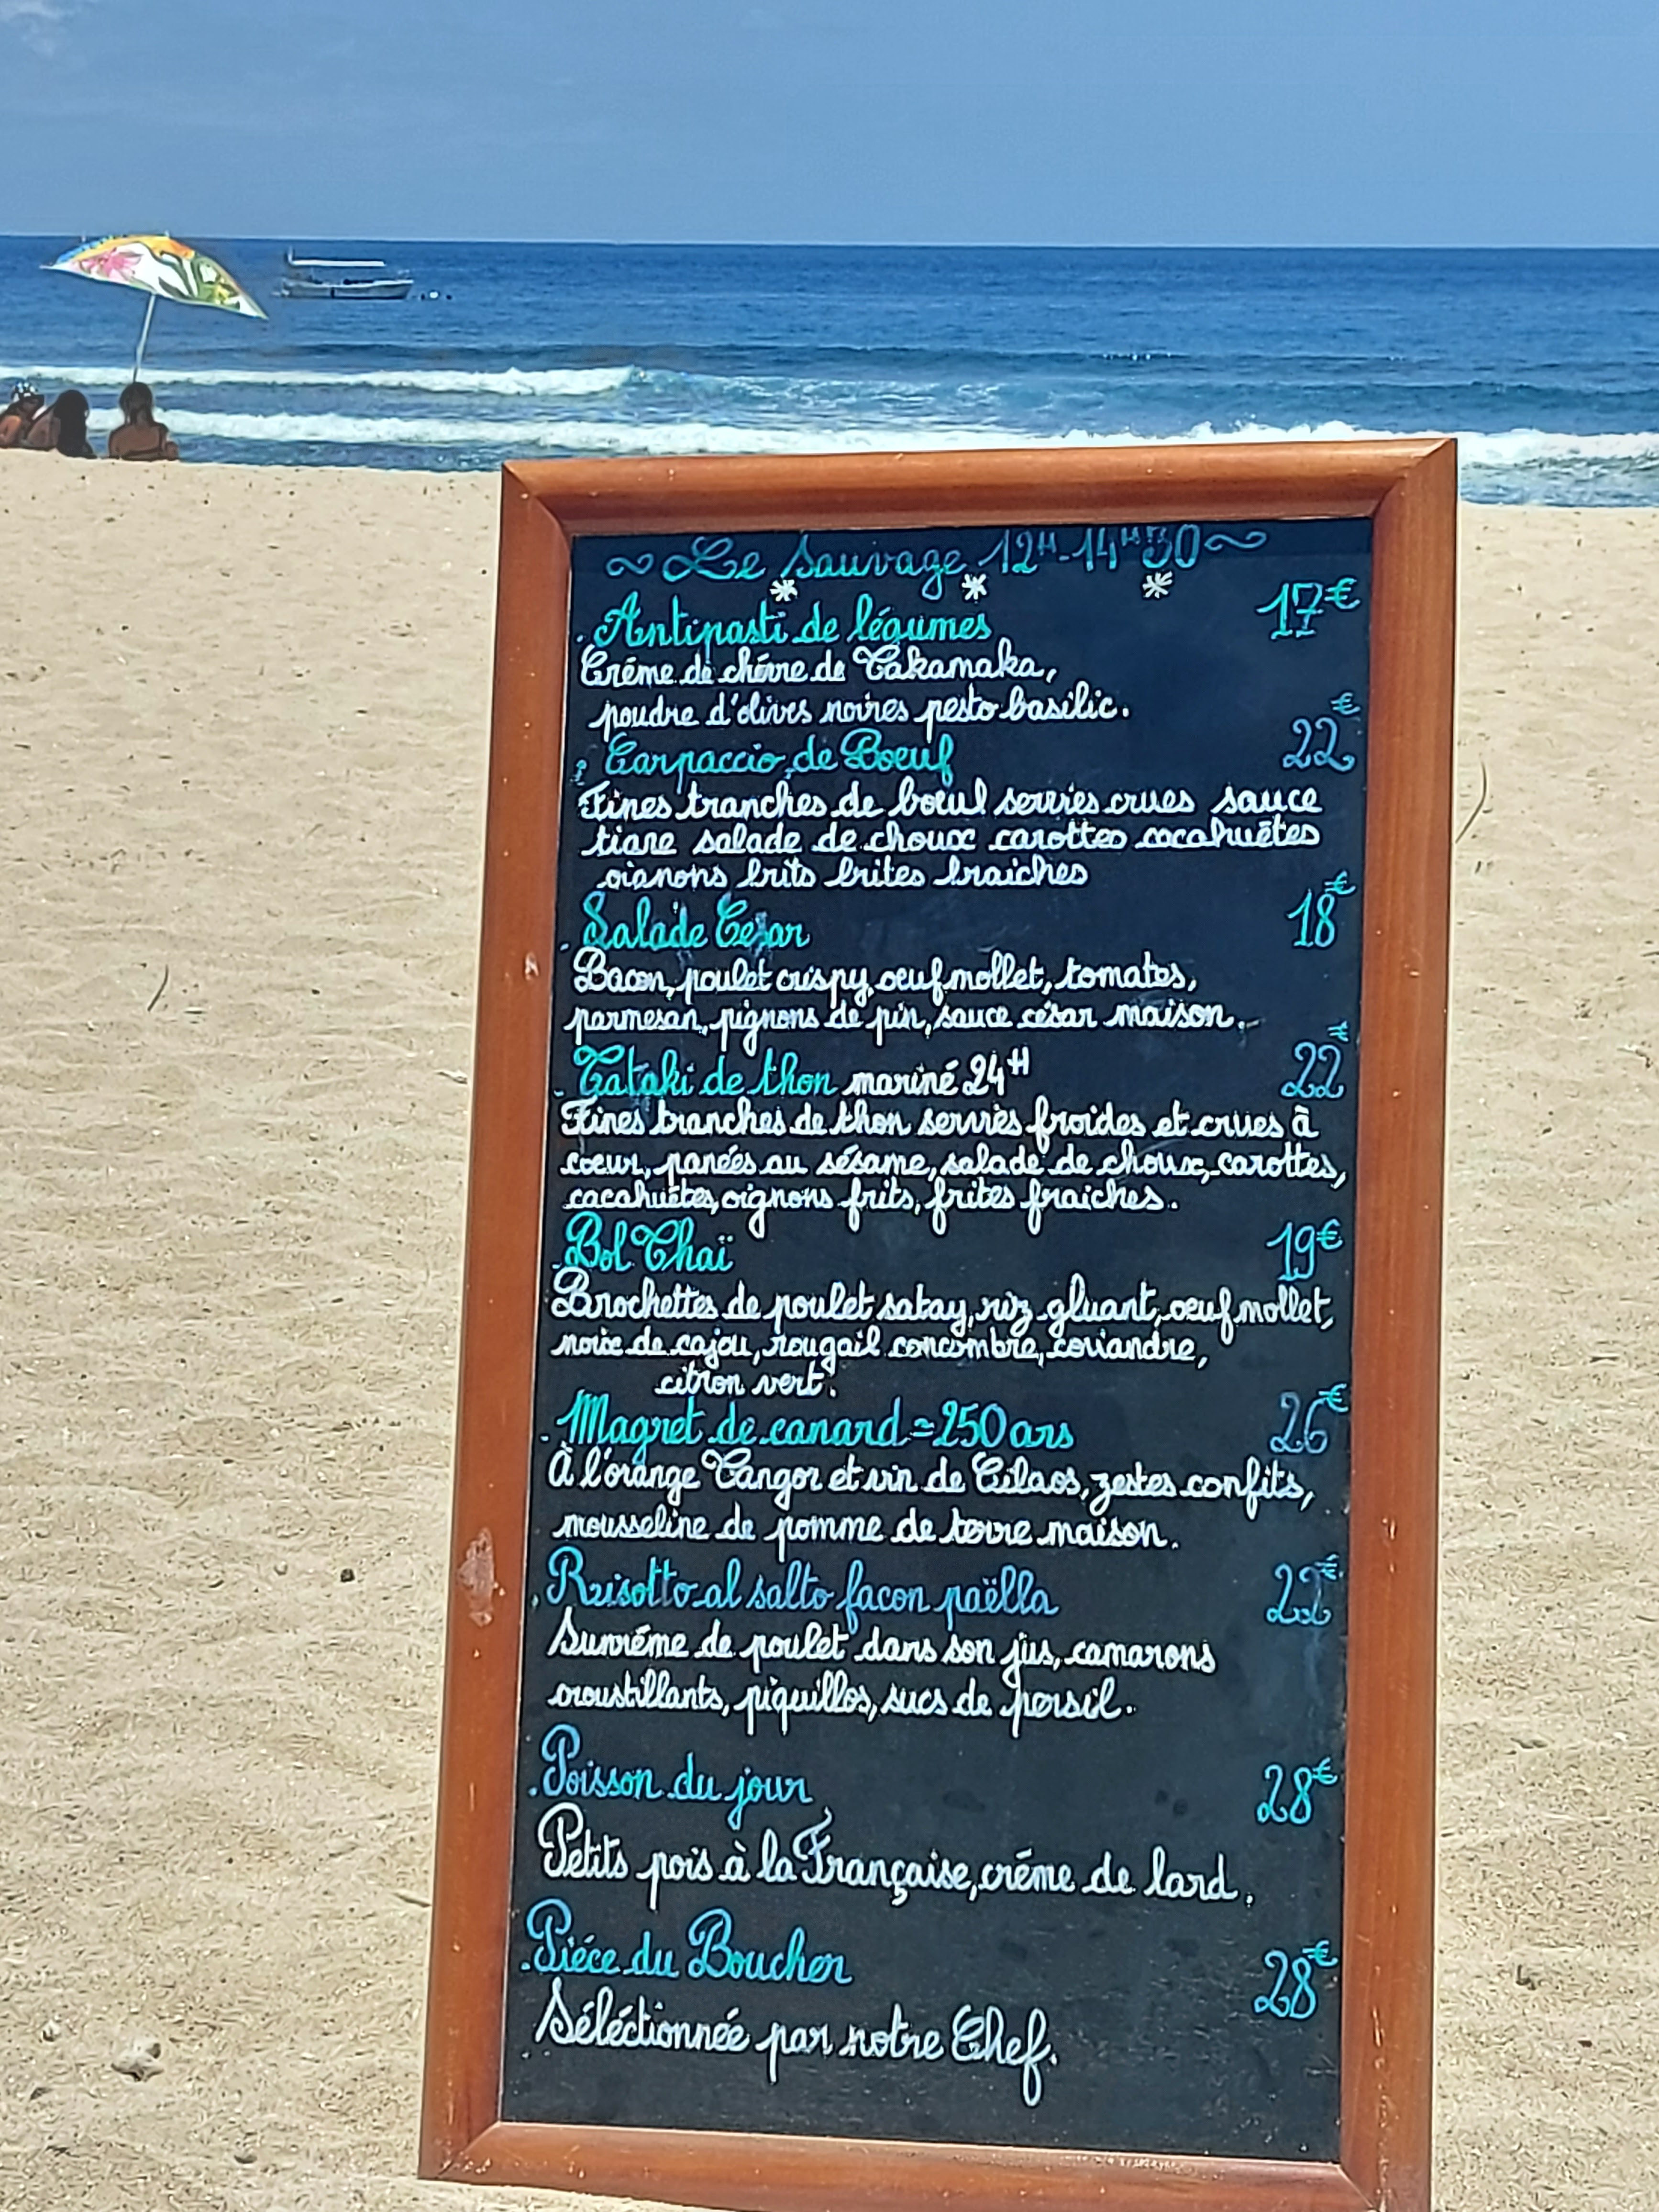 ~ Le Sauvage 12H-14H30 ~
* * *
. Antipasti de légumes 17€
Créme de chévre de Takamaka,
poudre d'olives noires pesto basilic.
. Carpaccio de Boeuf 22€
Fines tranches de boeuf servies crues sauce
tigre salade de choux carottes cacahuétes
oignons frits frites fraiches
. Salade César 18€
Bacon, poulet crispy, oeuf mollet, tomates,
parmesan, pignons de pin, sauce césar maison.
. Tataki de thon mariné 24H 22€
Fines tranches de thon servies froides et crues à
coeur, panées au sésame, salade de choux, carottes,
cacahuétes, oignons frits, frites fraiches.
. Bol Thaï 19€
Brochettes de poulet satay, riz gluant, oeuf mollet,
noix de cajou, rougail concombre, coriandre,
citron vert.
. Magret de canard ≃ 250 grs 26€
À l'orange Tangor et vin de Cilaos, zestes confits,
mousseline de pomme de terre maison.
. Risotto al salto facon paëlla 22€
Supréme de poulet dans son jus, camarons
croustillants, piquillos, sucs de persil.
. Poisson du jour 28€
Petits pois à la Française, créme de lard.
. Piéce du Boucher 28€
Séléctionnée par notre Chef.